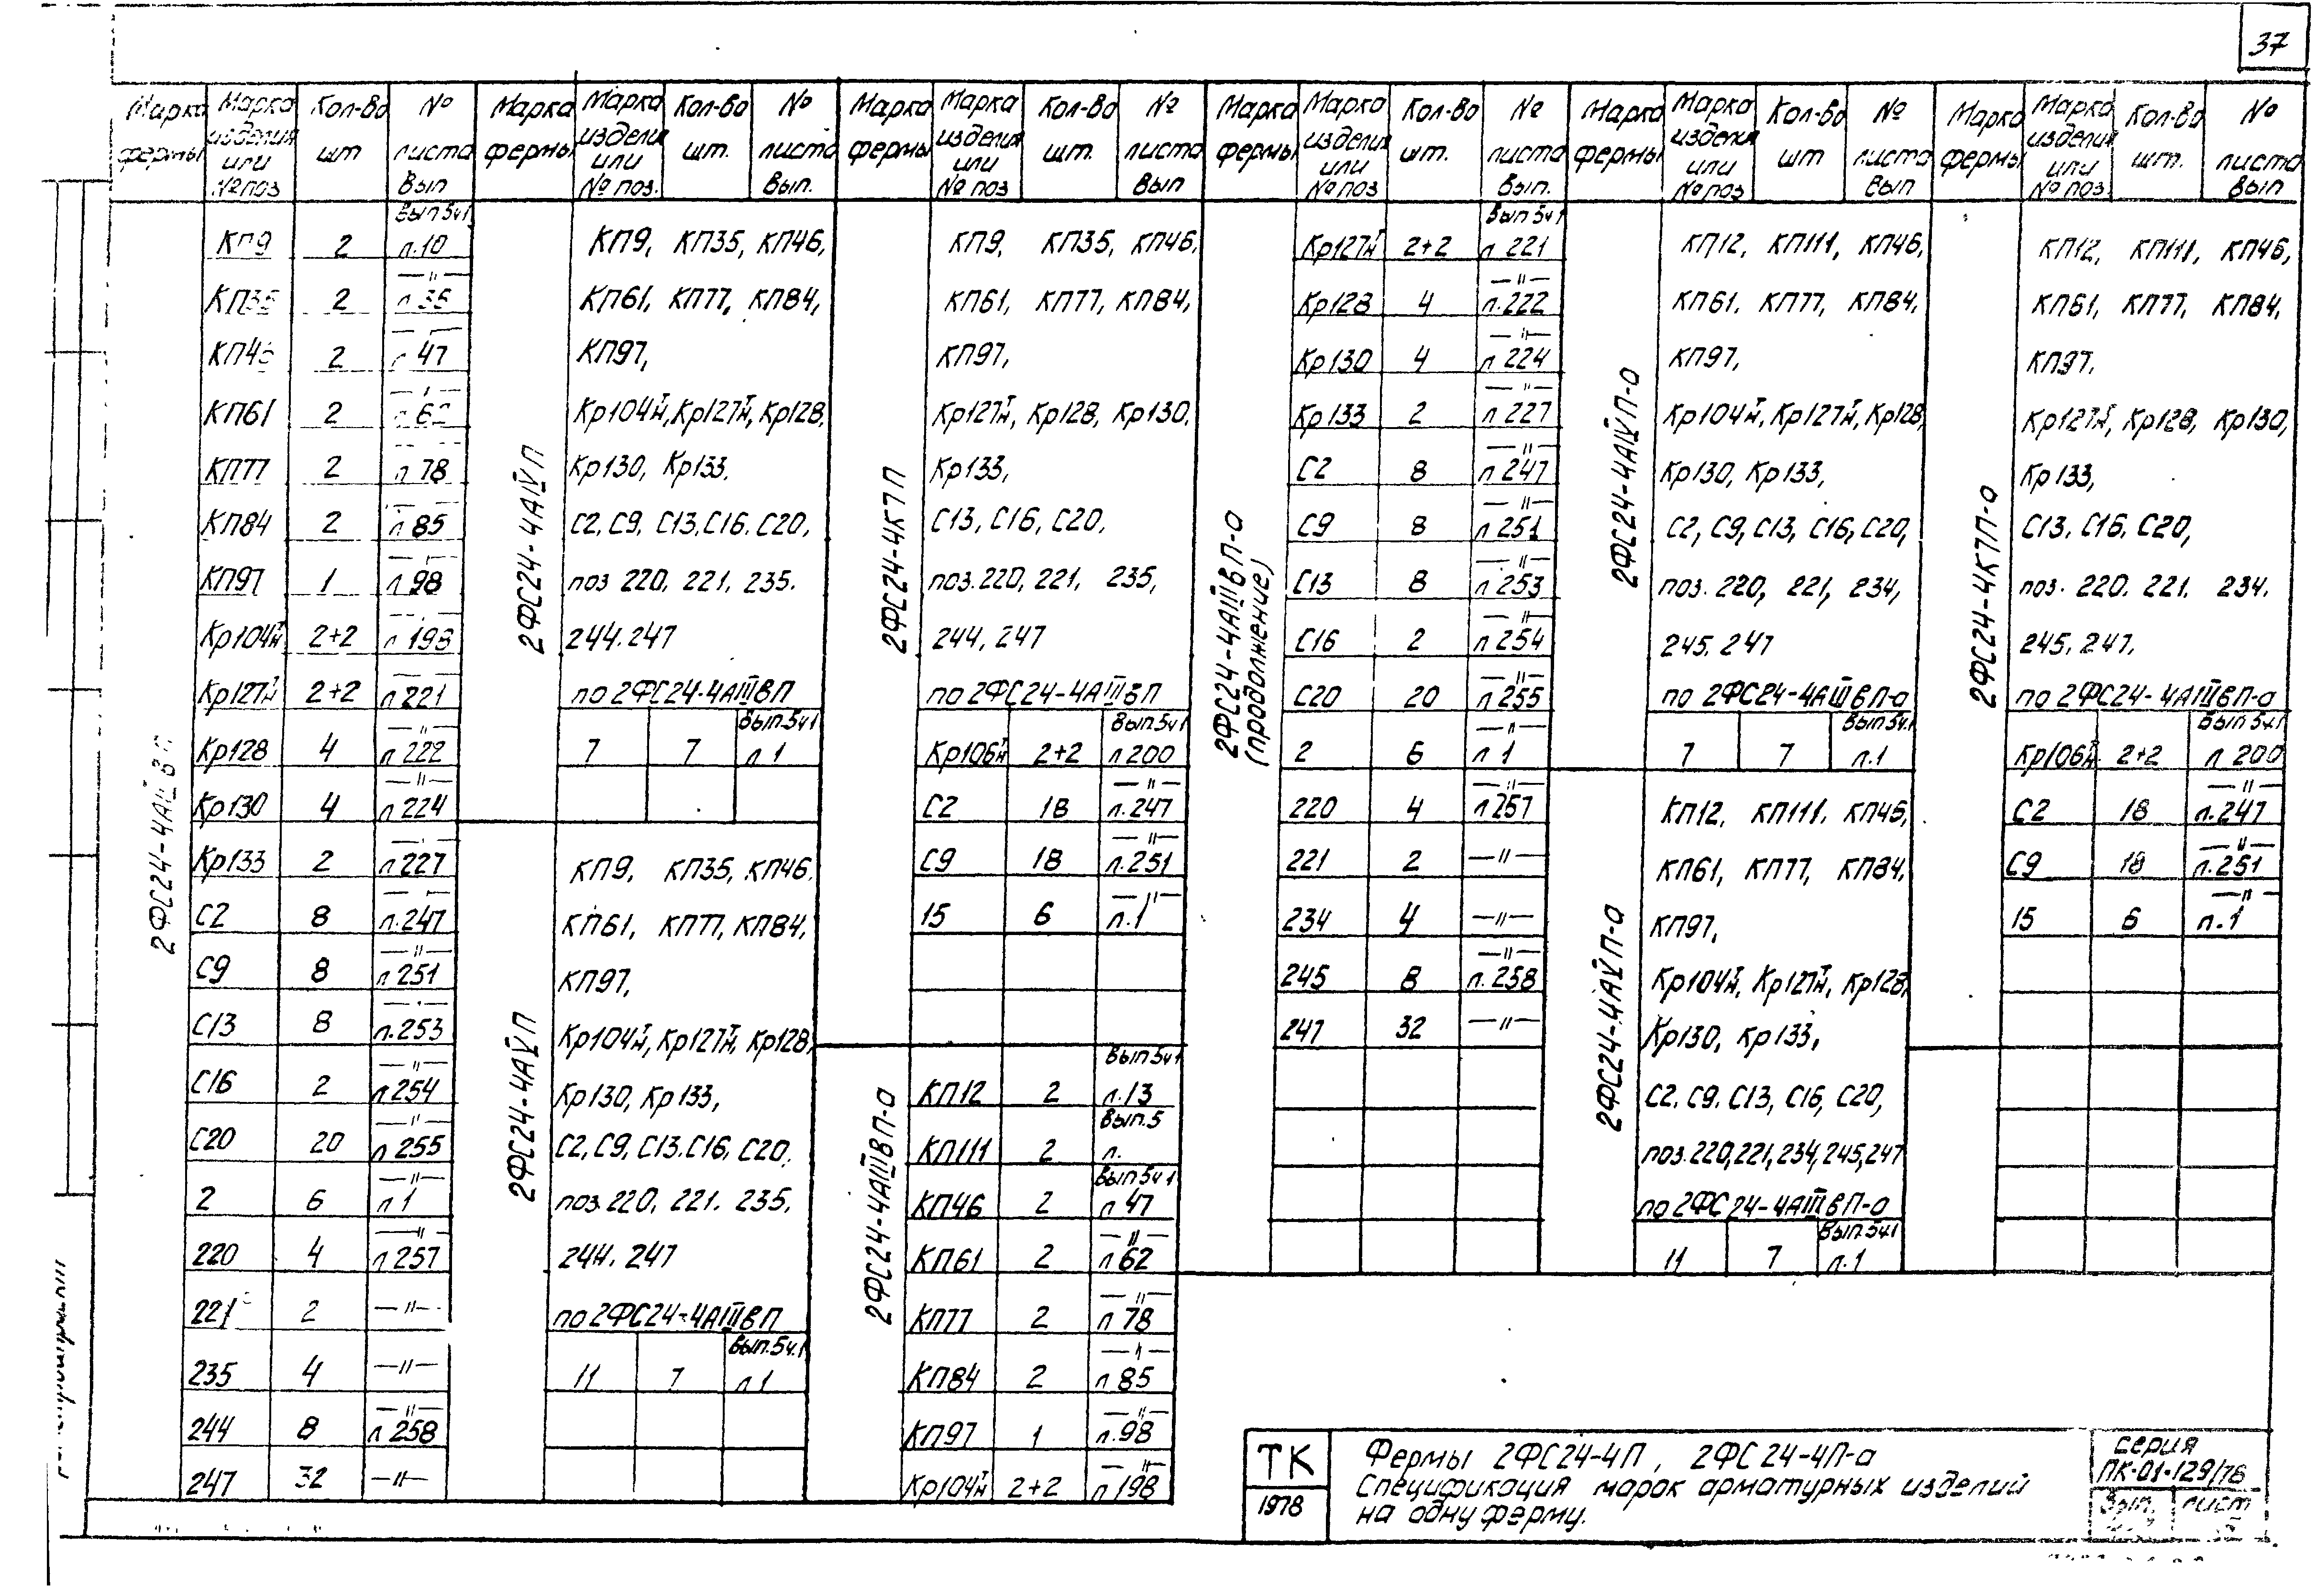 37
Марка фермы | Марка изделия или № поз | Кол-во шт | № листа вып
2ФС24-4АIIIвП
КП9 | 2 | Вып 5ч1 л.10
КП35 | 2 | —"— л 35
КП46 | 2 | 47
КП61 | 2
КП77 | 2 | л 78
КП84 | 2 | л 85
КП97 | 1 | —"— л 98
Кр104тн | 2+2 | л 198
Кр127тн | 2+2 | л 221
Кр128 | 4 | —"— л 222
Кр130 | 4 | —"— л 224
Кр133 | 2 | л 227
С2 | 8 | л.247
С9 | 8 | —"— л 251
С13 | 8 | л.253
С16 | 2 | —"— л 254
С20 | 20 | —"— л 255
2 | 6 | —"— л 1
220 | 4 | —"— л 257
221 | 2 | —"—
235 | 4 | —"—
244 | 8 | —"— л 258
247 | 32 | —"—
Марка фермы | Марка изделия или № поз. | Кол-во шт. | № листа Вып.
2ФС24-4АIVП
КП9, КП35, КП46,
КП61, КП77, КП84,
КП97,
Кр104тн, Кр127тн, Кр128,
Кр130, Кр133.
С2, С9, С13, С16, С20,
поз 220, 221, 235.
244.247
по 2ФС24-4АIIIвП
7 | 7 | Вып.5ч1 л 1
2ФС24-4АVП
КП9, КП35, КП46.
КП61, КП77, КП84,
КП97,
Кр104тн, Кр127тн, Кр128,
Кр130, Кр133,
С2, С9, С13. С16, С20.
поз.220, 221. 235,
244. 247
по 2ФС24-4АIIIвП
11 | 7 | Вып.5ч.1 л 1
Марка фермы | Марка изделия или № поз | Кол-во шт. | № листа Вып
2ФС24-4К7П
КП9, КП35, КП46,
КП61, КП77, КП84,
КП97,
Кр127тн, Кр128, Кр130,
Кр133,
С13, С16, С20,
поз.220, 221, 235,
244, 247
по 2ФС24-4АIIIвП
Кр106тн | 2+2 | Вып.5ч1 л 200
С2 | 18 | —"— л.247
С9 | 18 | —"— л.251
15 | 6 | —"— л.1
2ФС24-4АIIIвП-а
КП12 | 2 | Вып 5ч1 л.13
КП111 | 2 | Вып.5 л.
КП46 | 2 | Вып 5ч1 л 47
КП61 | 2 | —"— л 62
КП77 | 2 | —"— л 78
КП84 | 2 | —"— л 85
КП97 | 1 | —"— л.98
Кр104тн | 2+2 | —"— л 198
Марка фермы | Марка изделия или № поз | Кол-во шт. | № листа Вып.
2ФС24-4АIIIвП-а (продолжение)
Кр127тн | 2+2 | Вып 5ч1 л 221
Кр128 | 4 | —"— л.222
Кр130 | 4 | —"— л 224
Кр133 | 2 | —"— л 227
С2 | 8 | —"— л 247
С9 | 8 | —"— л 251
С13 | 8 | —"— л 253
С16 | 2 | —"— л 254
С20 | 20 | —"— л 255
2 | 6 | —"— л 1
220 | 4 | —"— л 257
221 | 2 | —"—
234 | 4 | —"—
245 | 8 | —"— л.258
247 | 32 | —"—
Марка фермы | Марка изделия или № поз | Кол-во шт | № листа Вып
2ФС24-4АIVП-а
КП12, КП111, КП46,
КП61, КП77, КП84,
КП97,
Кр104тн, Кр127тн, Кр128,
Кр130, Кр133,
С2, С9, С13, С16, С20,
поз. 220, 221, 234,
245. 247
по 2ФС24-4АIIIвП-а
7 | 7 | Вып 5ч.1 л.1
2ФС24-4АVП-а
КП12, КП111. КП46,
КП61, КП77, КП84,
КП97,
Кр104тн, Кр127тн, Кр128,
Кр130, Кр133,
С2. С9. С13, С16, С20,
поз.220,221,234,245,247
по 2ФС24-4АIIIвП-а
11 | 7 | Вып.5ч1 л.1
Марка фермы | Марка изделия или № поз | Кол-во шт. | № листа Вып
2ФС24-4К7П-а
КП12, КП111, КП46,
КП61, КП77, КП84,
КП97,
Кр127тн, Кр128, Кр130,
Кр133,
С13, С16, С20,
поз. 220. 221. 234.
245, 247,
по 2ФС24-4АIIIвП-а
Кр106тн | 2+2 | Вып 5ч.1 л 200
С2 | 18 | —"— л.247
С9 | 18 | —"— л.251
15 | 6 | —"— л.1
ТК
1978
Фермы 2ФС24-4П, 2ФС24-4П-а
Спецификация марок арматурных изделий
на одну ферму.
серия
ПК-01-129/78
Вып. | лист